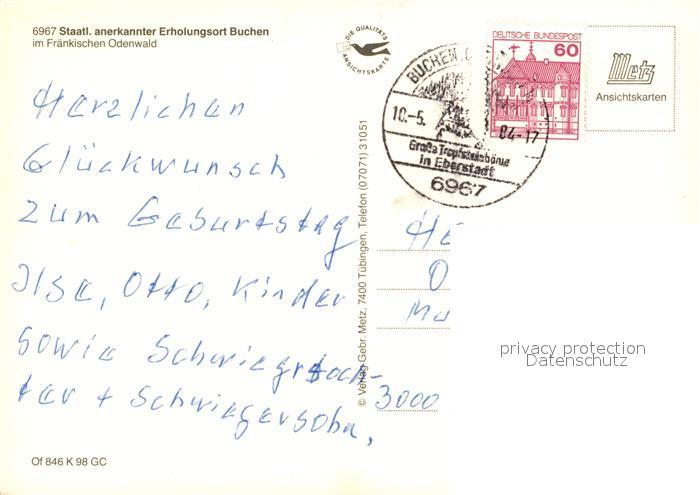 6967 Staatl. anerkannter Erholungsort Buchen
im Fränkischen Odenwald
DIE QUALITÄTS
ANSICHTSKARTE
BUCHEN
10.-5. 84-17
Große Tropfsteinhöhle
in Eberstadt
6967
DEUTSCHE BUNDESPOST
60
Metz
Ansichtskarten
Herzlichen
Glückwunsch
zum Geburtstag
Ilse, Otto, Kinder
sowie Schwiegertoch-
ter + Schwiegersohn,
© Verlag Gebr. Metz, 7400 Tübingen, Telefon (07071) 31051
He
O
Ma
3000
privacy protection
Datenschutz
Of 846 K 98 GC